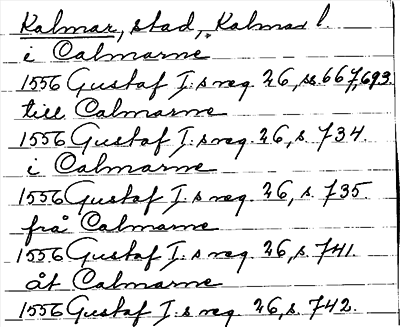 Kalmar, stad, Kalmar l.
i Calmarne
1556 Gustaf I:s reg. 26, ss. 667, 693.
till Calmarne
1556 Gustaf I:s reg. 26, s. 734.
i Calmarne
1556 Gustaf I:s reg. 26, s. 735.
från Calmarne
1556 Gustaf I:s reg. 26, s. 741.
åt Calmarne
1556 Gustaf I:s reg. 26, s. 742.